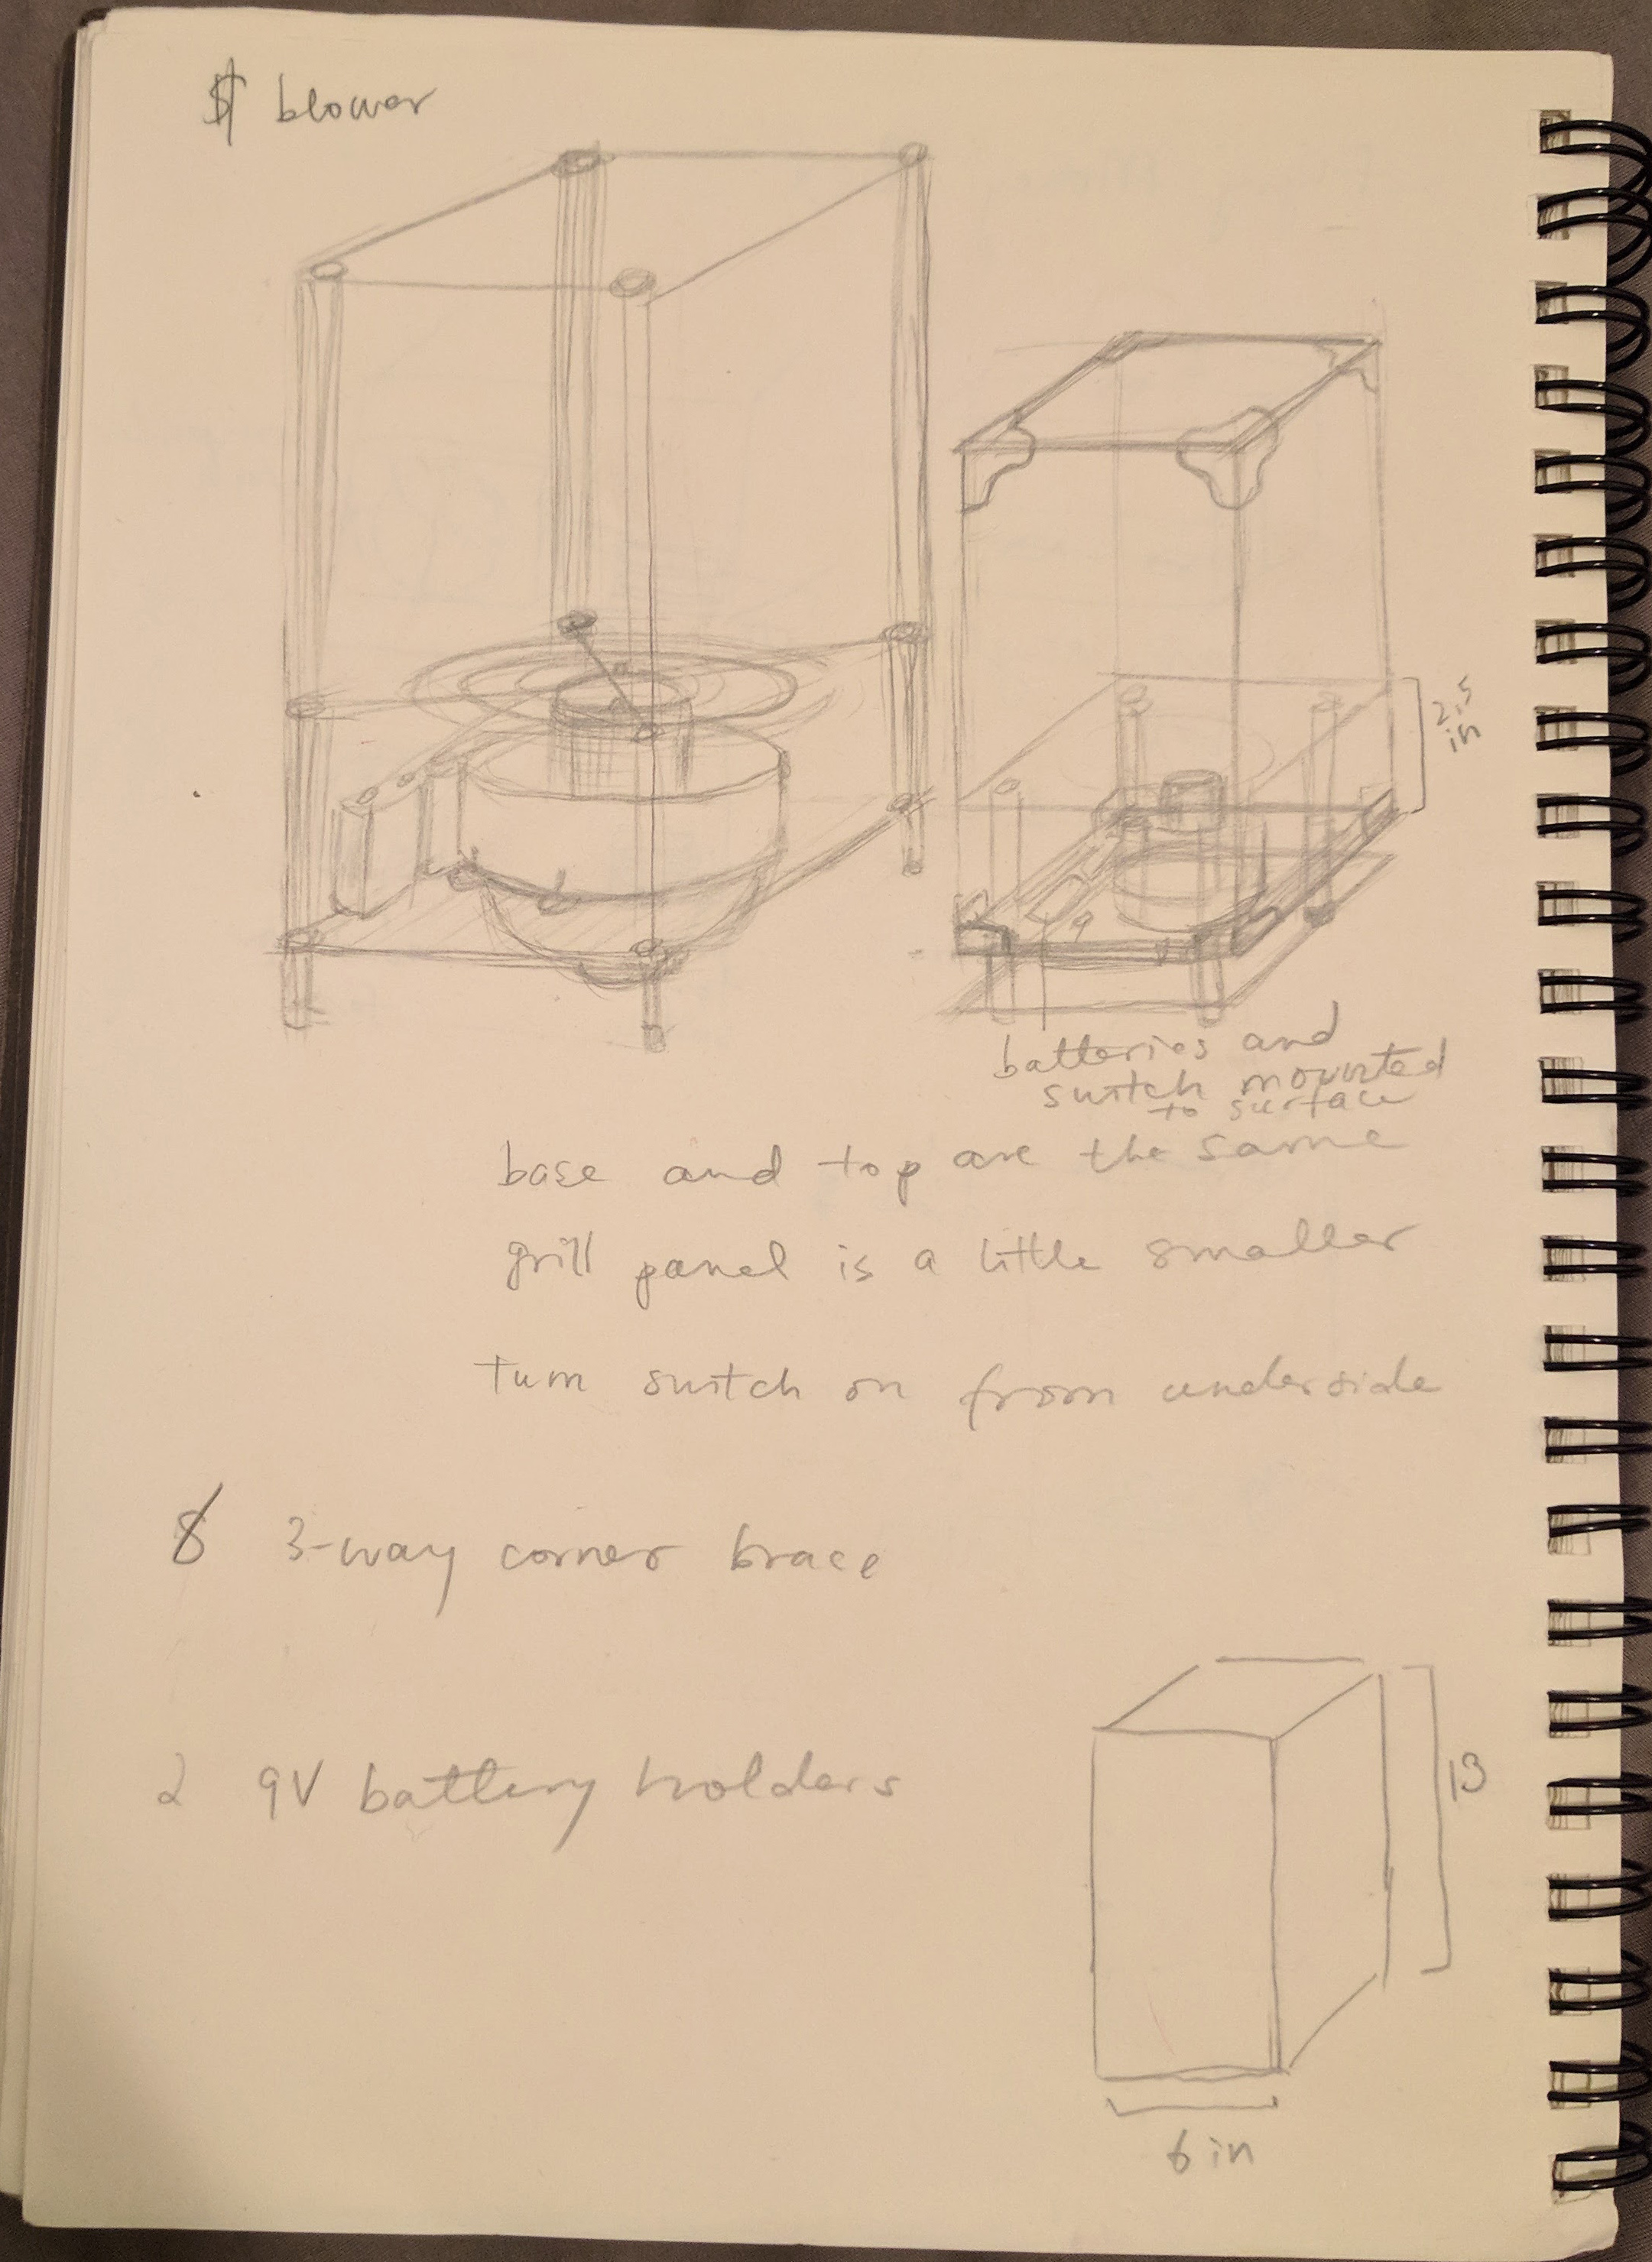 $ blower
2.5
in
batteries and
switch mounted
to surface
base and top are the same
grill panel is a little smaller
turn switch on from underside
8 3-way corner brace
2 9V battery holders
13
6 in